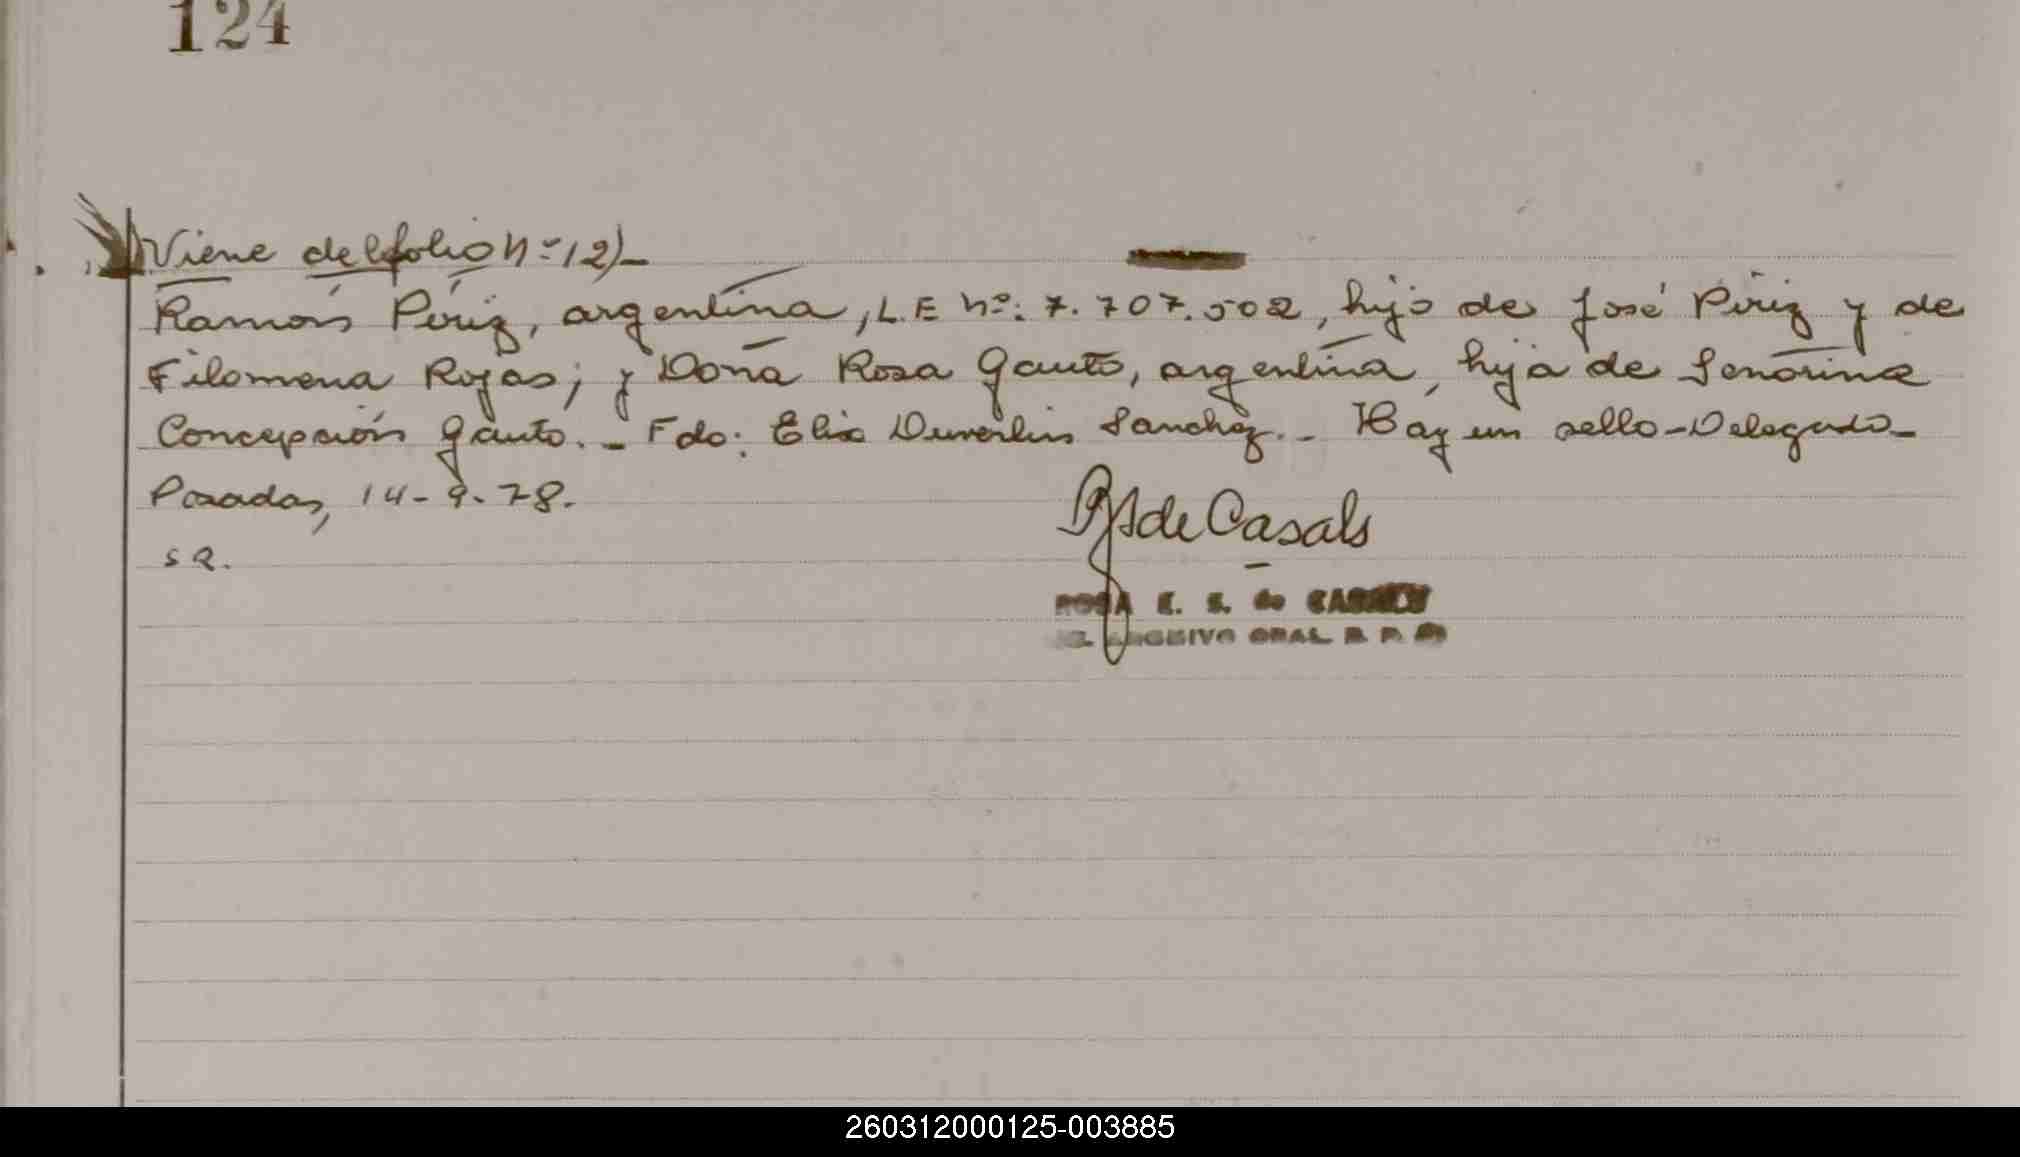 124
Viene del folio nº 12)-
Ramón Píriz, argentina, L.E nº: 7.707.502, hijo de José Píriz y de
Filomena Rojas; y Doña Rosa Gauto, argentina, hija de Señorina
Concepción Gauto. - Fdo: Sanchez. - Hay un sello-Delegado-
Posadas, 14-9-78.
de Casals
ROSA E. S. de CASALS
ARCHIVO GRAL. R. P.
260312000125-003885